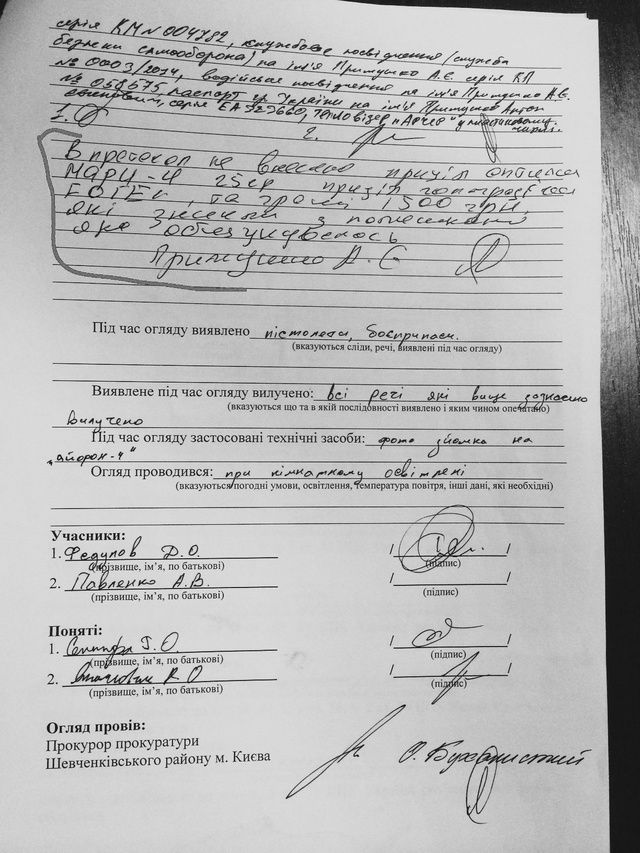 серія КМ № 004782, службове посвідчення (служба
безпеки самооборона) на ім'я Примушко А.Є. серія КП
№ 0003/2014, водійське посвідчення на ім'я Примушко А.Є.
№ 058575 паспорт гр. України на ім'я Примушко Антон
серія ЕА 329660, тепловізер "Арчер" у пластиковому
1. 2.
В протокол не внесено приціл оптичний
МАРЧ-4 25ск приціл голографічний
EOTEK, та гроші 1500 грн.
які зникли з помешкання
яке обшукувалось
Примушко А. Є
Під час огляду виявлено пістолети, боєприпаси.
(вказуються сліди, речі, виявлені під час огляду)
Виявлене під час огляду вилучено: всі речі які вище зазначено
(вказуються що та в якій послідовності виявлено і яким чином опечатано)
вилучено
Під час огляду застосовані технічні засоби: фото зйомка на
"айфон-4"
Огляд проводився: при кімнатному освітлені
(вказуються погодні умови, освітлення, температура повітря, інші дані, які необхідні)
Учасники:
1. Федулов Д.О. / /
(прізвище, ім'я, по батькові) (підпис)
2. Павленко А.В. / /
(прізвище, ім'я, по батькові) (підпис)
Поняті:
1. Г.О. / /
(прізвище, ім'я, по батькові) (підпис)
2. К О / /
(прізвище, ім'я, по батькові) (підпис)
Огляд провів:
Прокурор прокуратури
Шевченківського району м. Києва
О. Буханистий